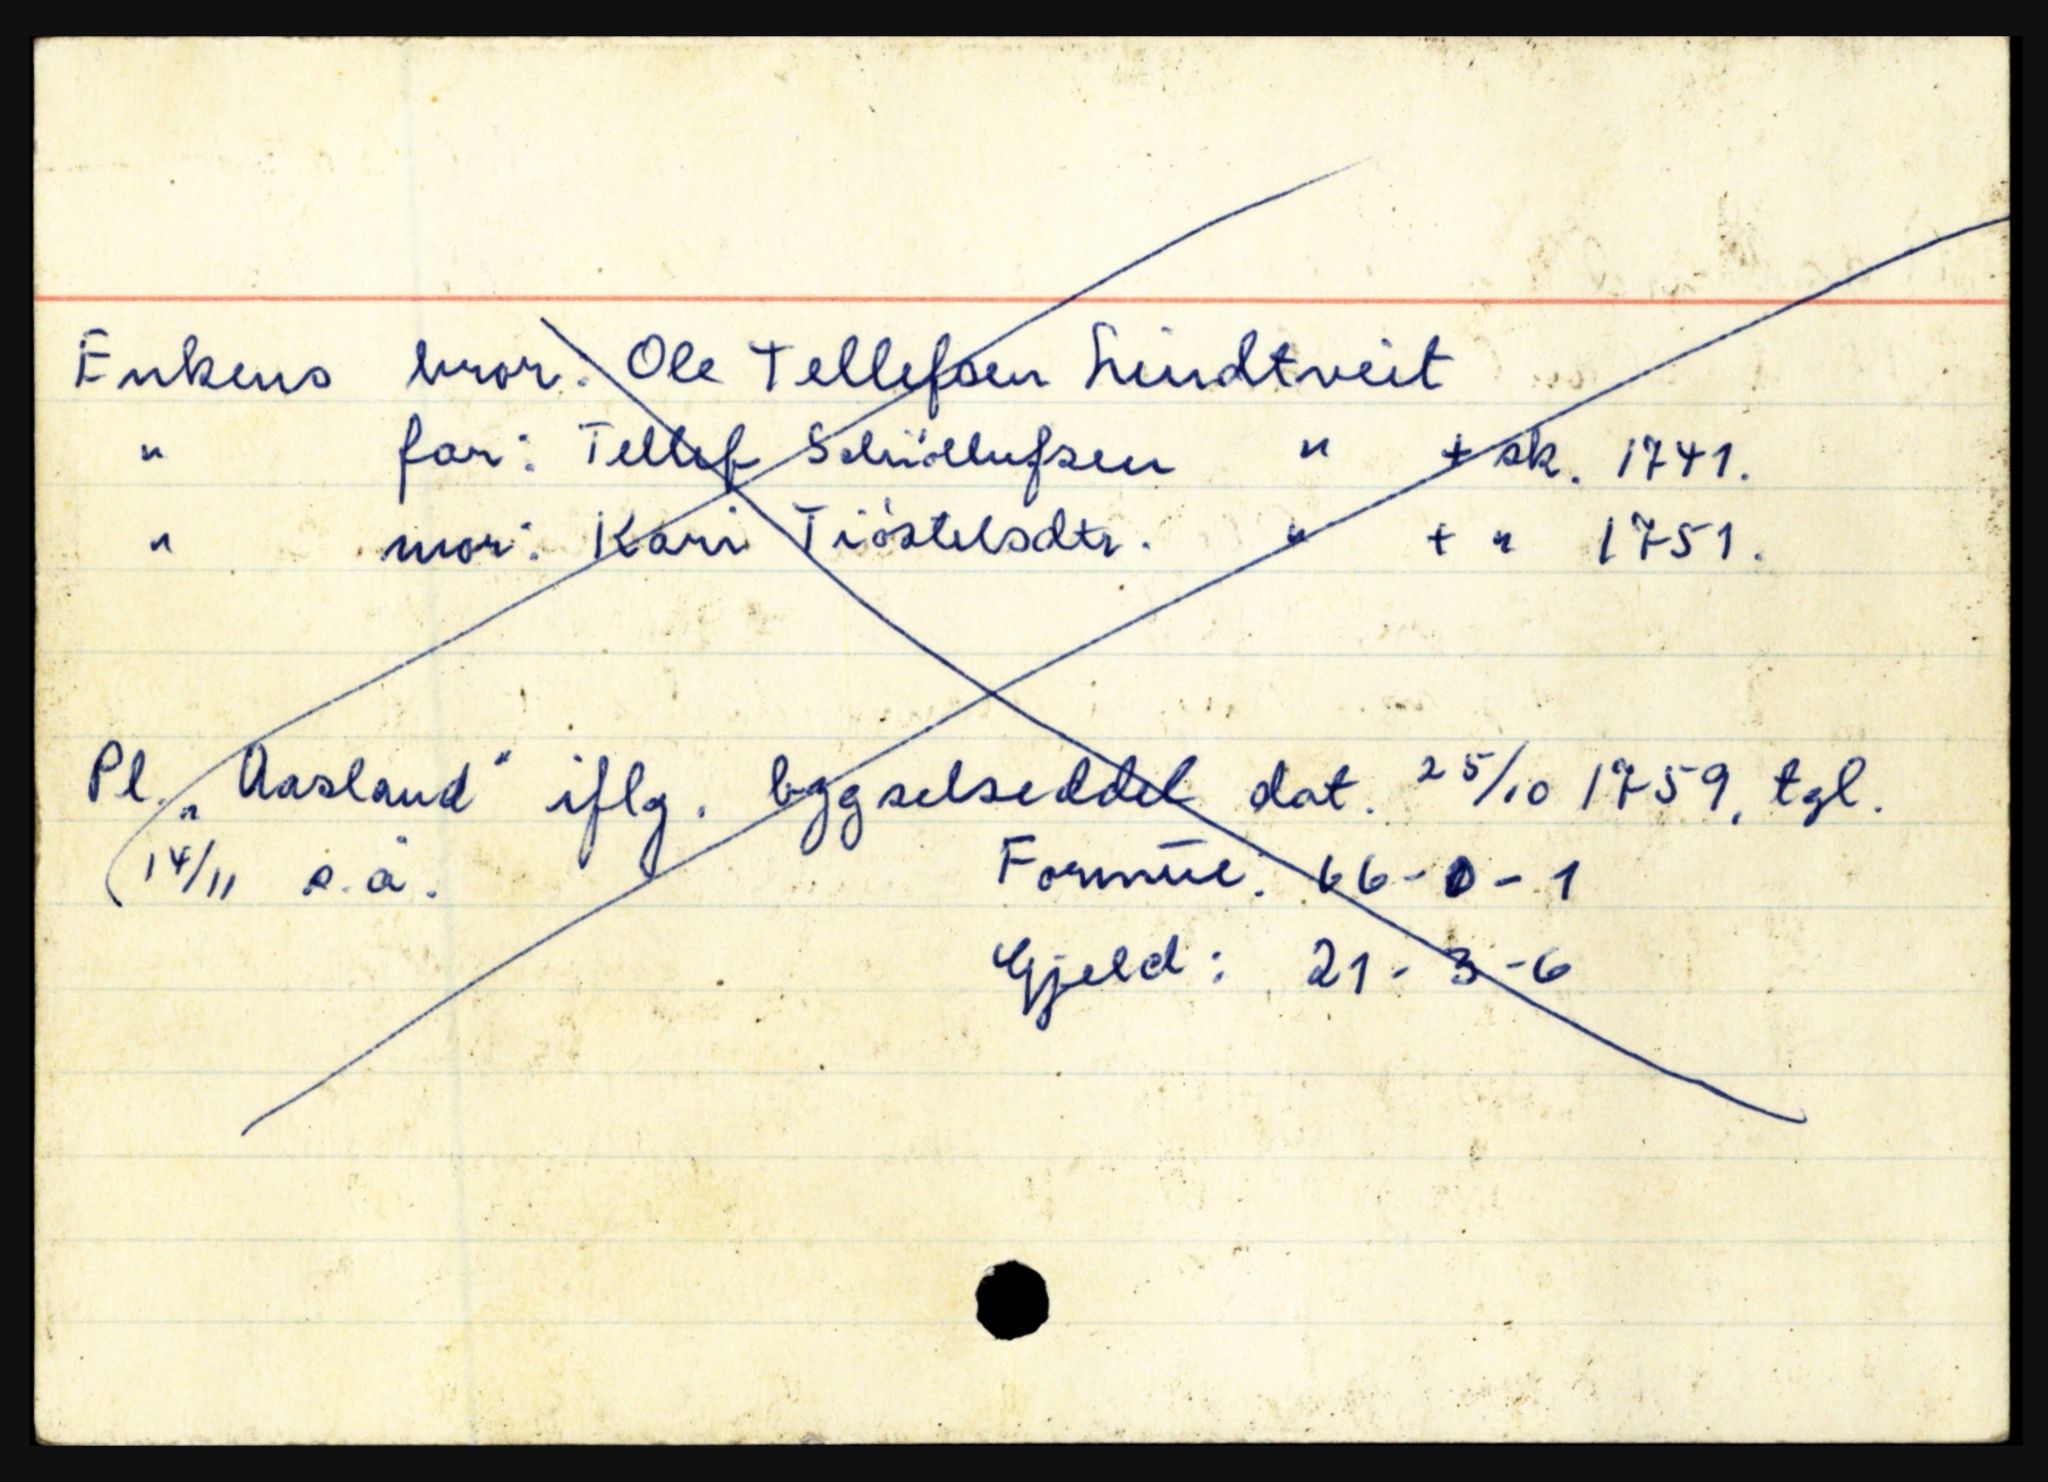 Enkens bror: Ole Tellefsen Lindtveit
" far: Tellef Schiøllufsen " + sk. 1741.
" mor: Kari Tiøstelsdtr. " + " 1751.
Pl. "Aasland" iflg. bygselseddel dat. 25/10 1759, tgl.
14/11 s.å. Formue: 66-0-1
Gjeld: 21-3-6